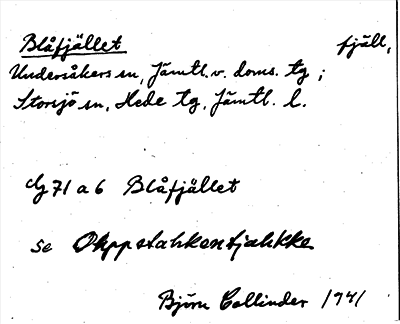 Blåfjället fjäll,
Undersåkers sn, Jämtl. v. doms. tg;
Storsjö sn, Hede tg, Jämtl. l.
Gg 71 a 6 Blåfjället
se Ohppstahkentjahkke
Björn Collinder 1941